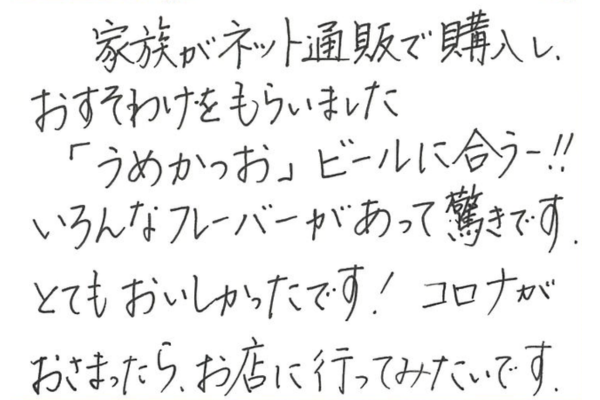 家族がネット通販で購入し、
おすそわけをもらいました
「うめかつお」ビールに合うー!!
いろんなフレーバーがあって驚きです.
とてもおいしかったです! コロナが
おさまったら、お店に行ってみたいです.